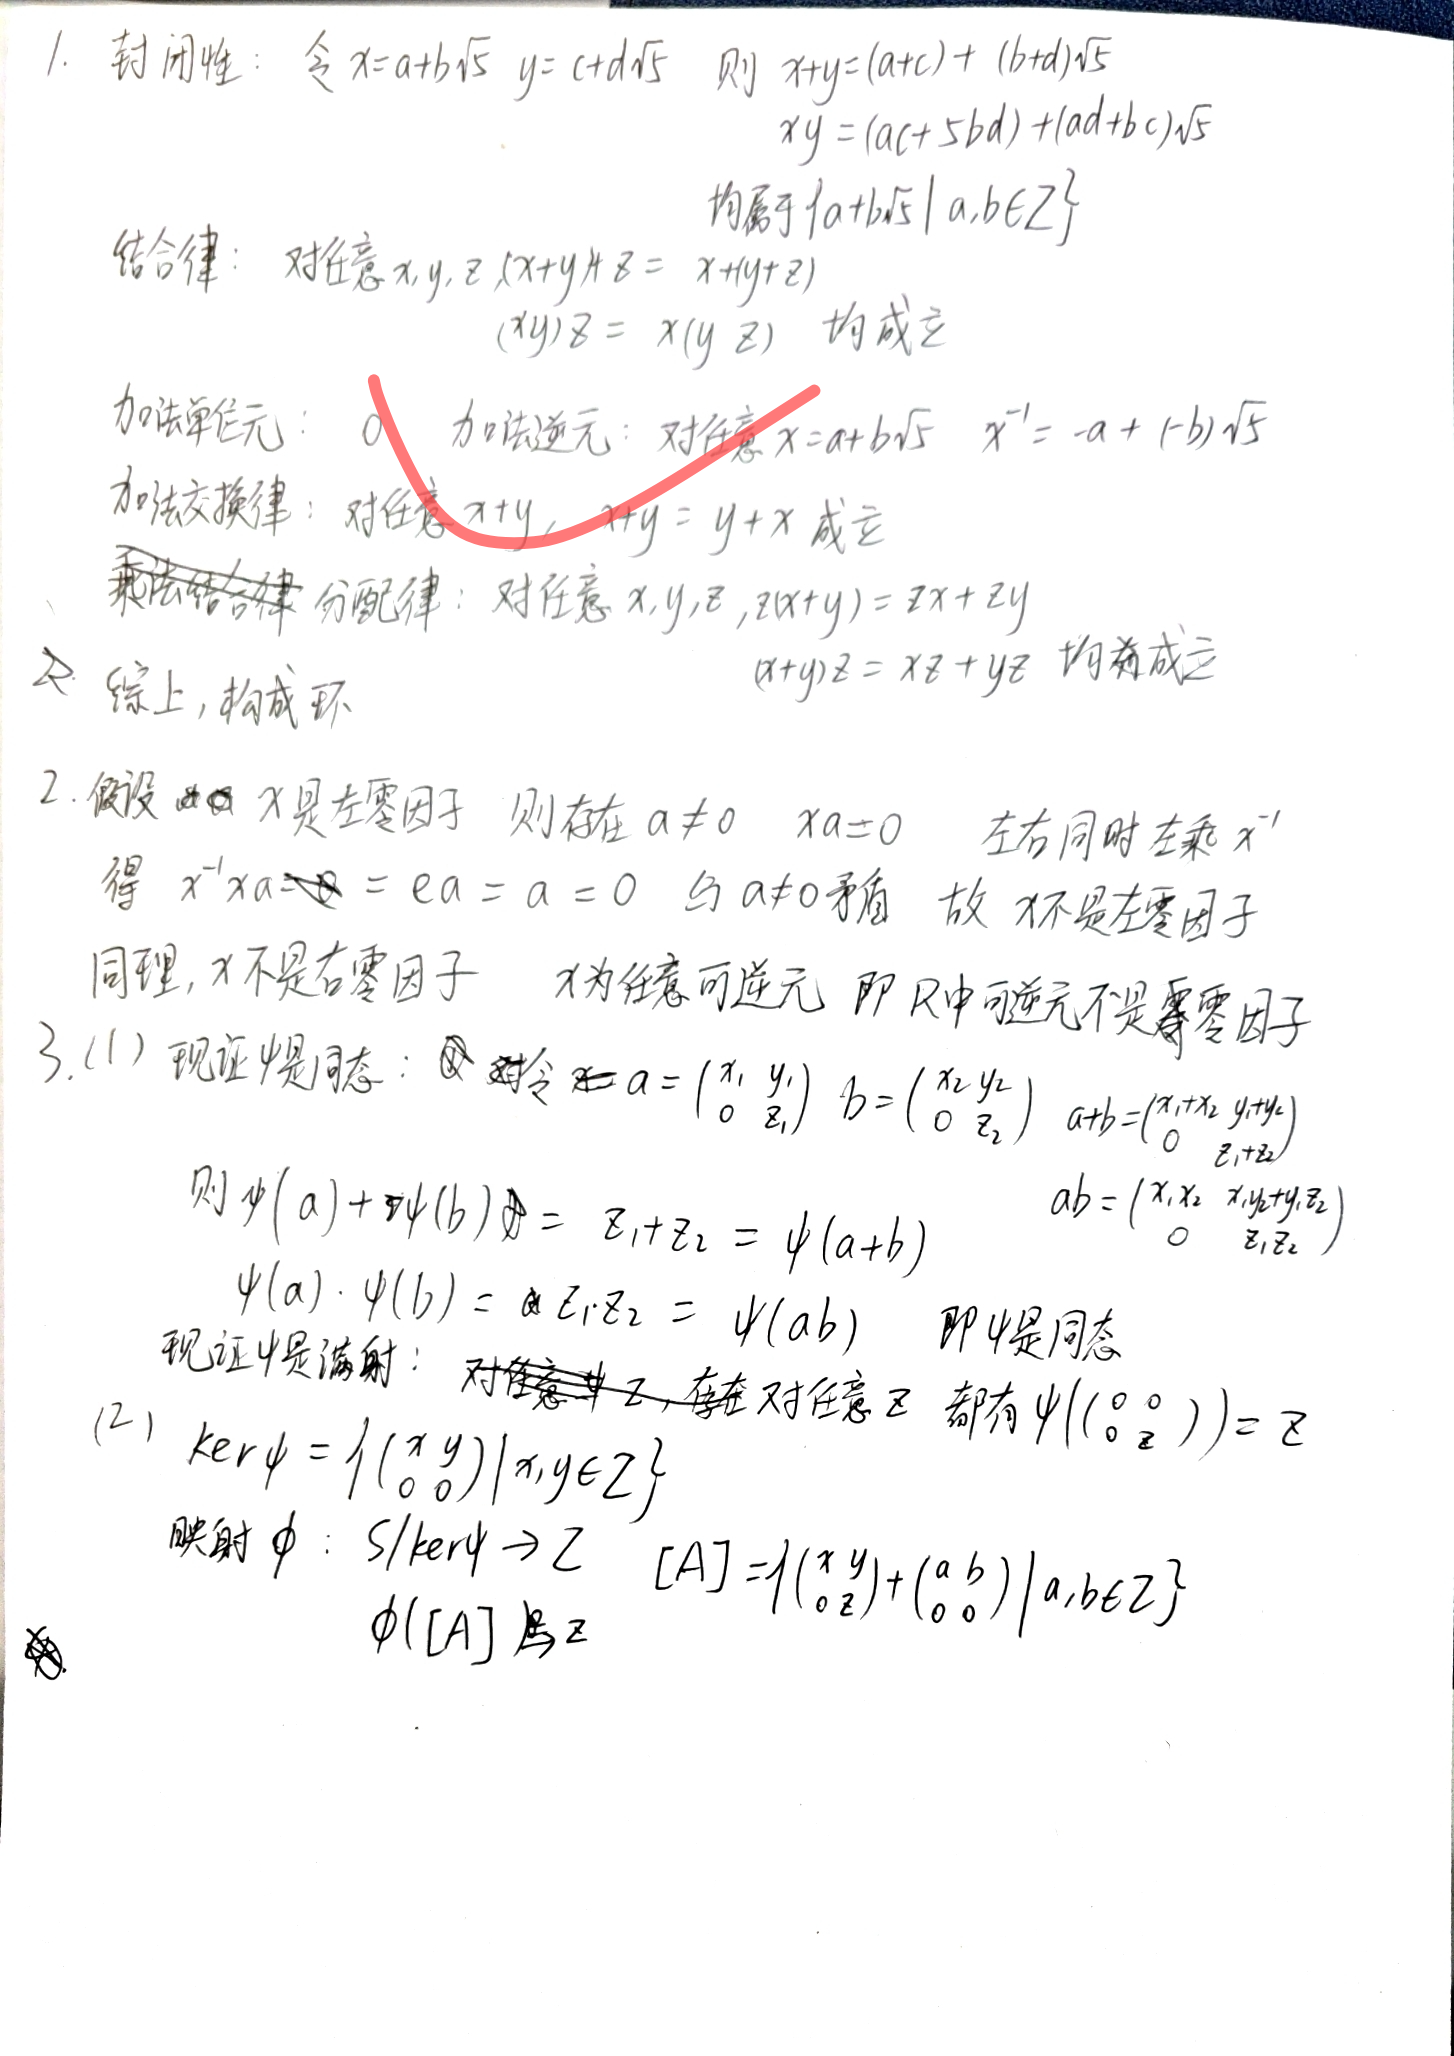 1. 封闭性: 令 x=a+b√5 y=c+d√5 则 x+y=(a+c)+(b+d)√5
xy=(ac+5bd)+(ad+bc)√5
均属于{a+b√5|a,b∈Z}
结合律: 对任意x,y,z,(x+y)+z=x+(y+z)
(xy)z=x(yz) 均成立
加法单位元: 0 加法逆元: 对任意x=a+b√5 x⁻¹=-a+(-b)√5
加法交换律: 对任意x+y, x+y=y+x 成立
乘法结合律 分配律: 对任意x,y,z,z(x+y)=zx+zy
(x+y)z=xz+yz 均成立
综上,构成环
2. 假设 x是左零因子 则存在a≠0 xa=0 左右同时左乘x⁻¹
得 x⁻¹xa=ea=a=0 与a≠0矛盾 故x不是左零因子
同理,x不是右零因子 x为任意可逆元 即R中可逆元不是零因子
3.(1) 现证ψ是同态: 令 a=(x₁ y₁ 0 z₁) b=(x₂ y₂ 0 z₂) a+b=(x₁+x₂ y₁+y₂ 0 z₁+z₂)
则ψ(a)+ψ(b)=z₁+z₂=ψ(a+b) ab=(x₁x₂ x₁y₂+y₁z₂ 0 z₁z₂)
ψ(a)·ψ(b)=z₁·z₂=ψ(ab) 即ψ是同态
现证ψ是满射: 对任意z,存在 对任意z 都有ψ((0 0 0 z))=z
(2) kerψ={(x y 0 0)|x,y∈Z}
映射φ: S/kerψ→Z [A]={(x y 0 z)+(a b 0 0)|a,b∈Z}
φ([A])↦z